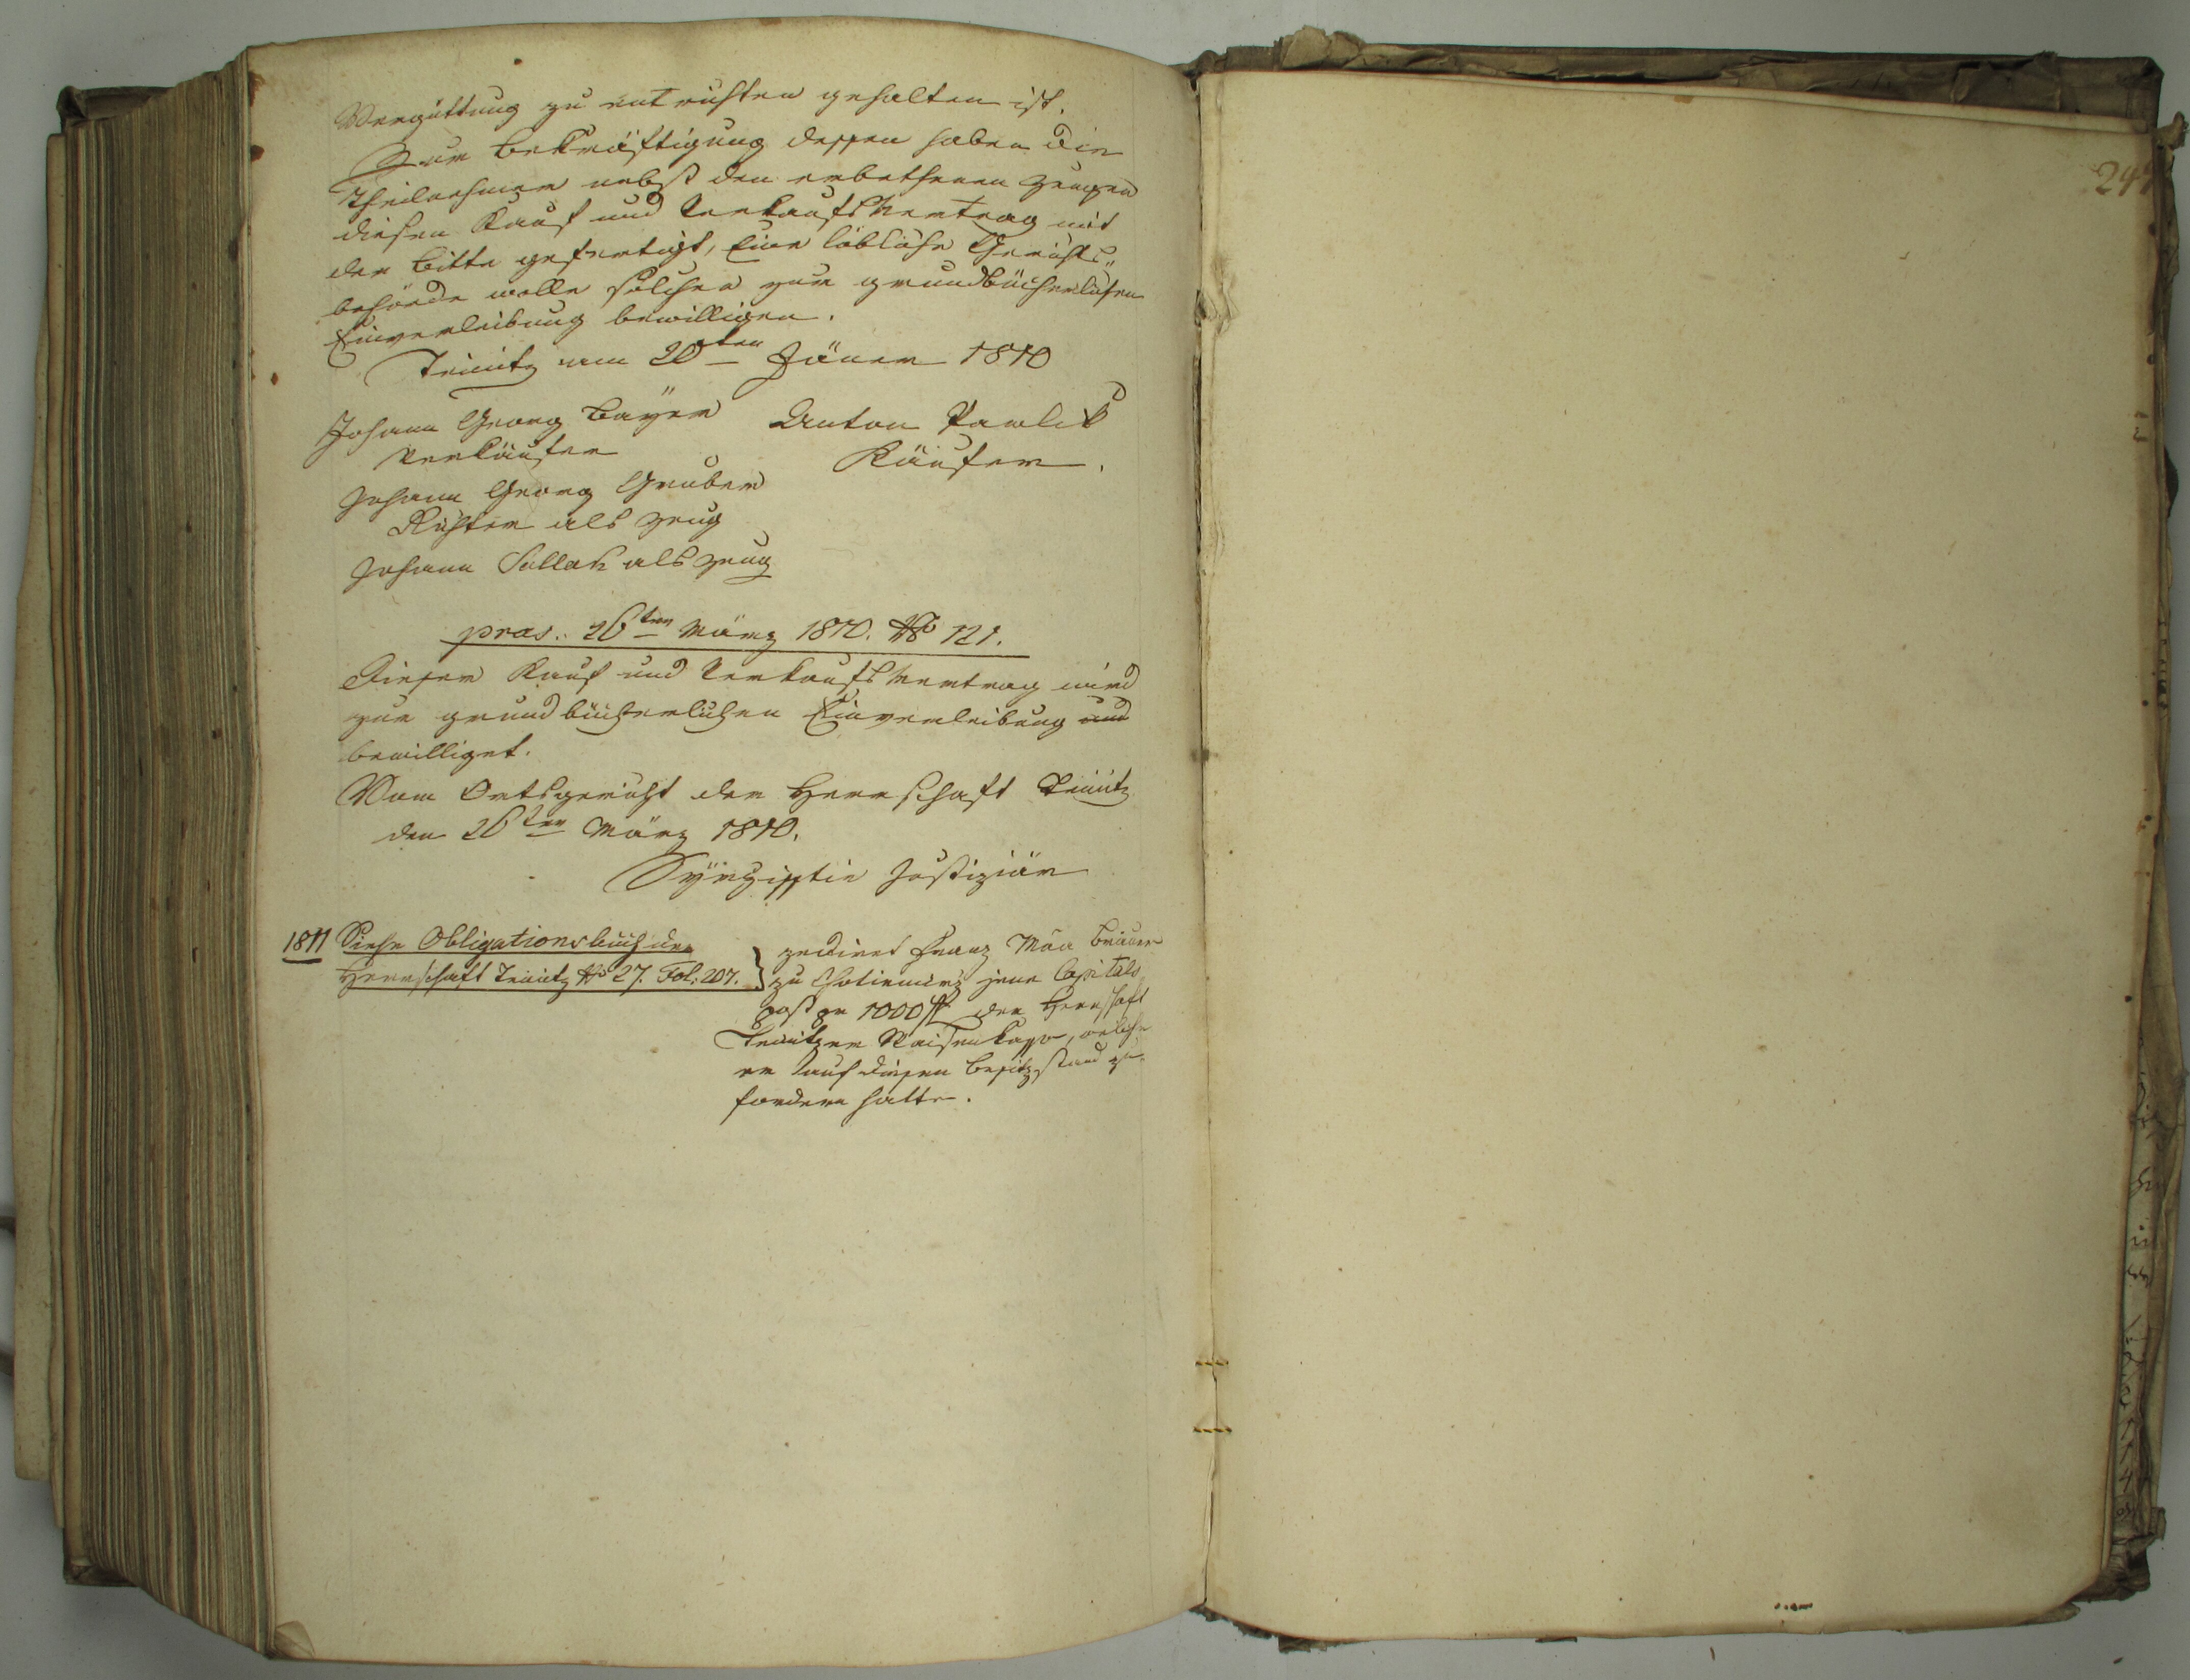 Vergüttung zu entrichten gehalten ist.
Zur Bekräftigung dessen haben die
Theilnehmer nebst den erbethenen Zeugen
diesen Kauf und Verkaufsvertrag mit
der Bitte gefertigt, Eine löbliche Gerichts„
behörde wolle solchen zur grundbücherlichen
Einverleibung bewilligen.
am 20ten Jäner 1810
Johann Georg Bayer Anton Pawlik
Verkäufer Käufer.
Johann Georg Gruber
Richter als Zeug
Johann als Zeug
pras.. 26ten März 1810. No 121.
Dieser Kauf und Verkaufsvertrag wird
zur grundbücherlichen Einverleibung und
bewilliget.
Vom Ortsgericht der Herrschaft
den 26ten März 1810.
Justiziär
1811 Siehe Obligationsbuch der
Herrschaft No 27. Fol: 207.
zediret Franz Brauer
zu jene Capitals
post pr 1000 f der Herrschaft
Waisenkasse, welche
er auf diesen Besitzstand zu
fordern hatte.